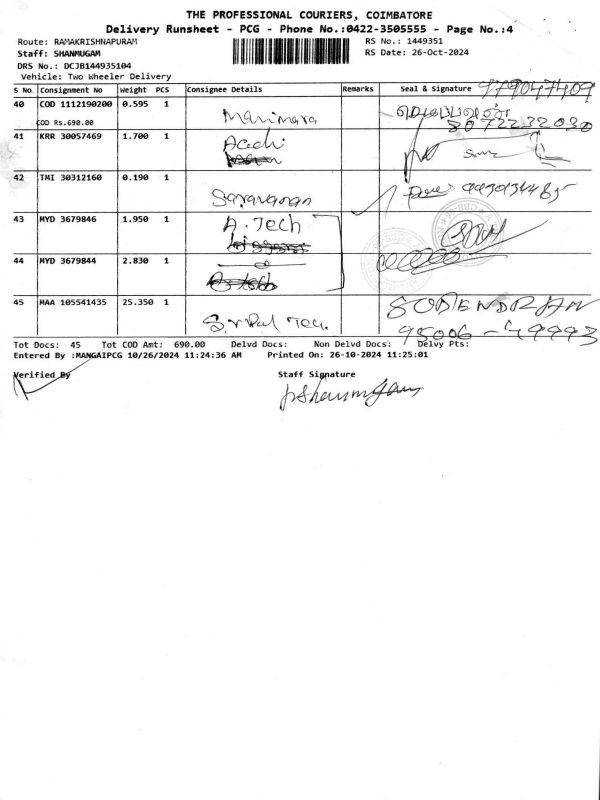 THE PROFESSIONAL COURIERS, COIMBATORE
Delivery Runsheet - PCG - Phone No.:0422-3505555 - Page No.:4
Route: RAMAKRISHNAPURAM RS No.: 1449351
Staff: SHANMUGAM RS Date: 26-Oct-2024
DRS No.: DCJB144935104
Vehicle: Two Wheeler Delivery
S No. Consignment No Weight PCS Consignee Details Remarks Seal & Signature 979047409
40 COD 1112190200 0.595 1 Manimara
COD Rs.690.00 8072232030
41 KRR 30057469 1.700 1 Acchi
42 TMI 30312160 0.190 1 Saravanan
43 MYD 3679846 1.950 1 A. Tech
44 MYD 3679844 2.830 1
45 MAA 105541435 25.350 1 SODENDRAN
95006-49993
Tot Docs: 45 Tot COD Amt: 690.00 Delvd Docs: Non Delvd Docs: Delvy Pts:
Entered By :MANGAIPCG 10/26/2024 11:24:36 AM Printed On: 26-10-2024 11:25:01
Verified By Staff Signature